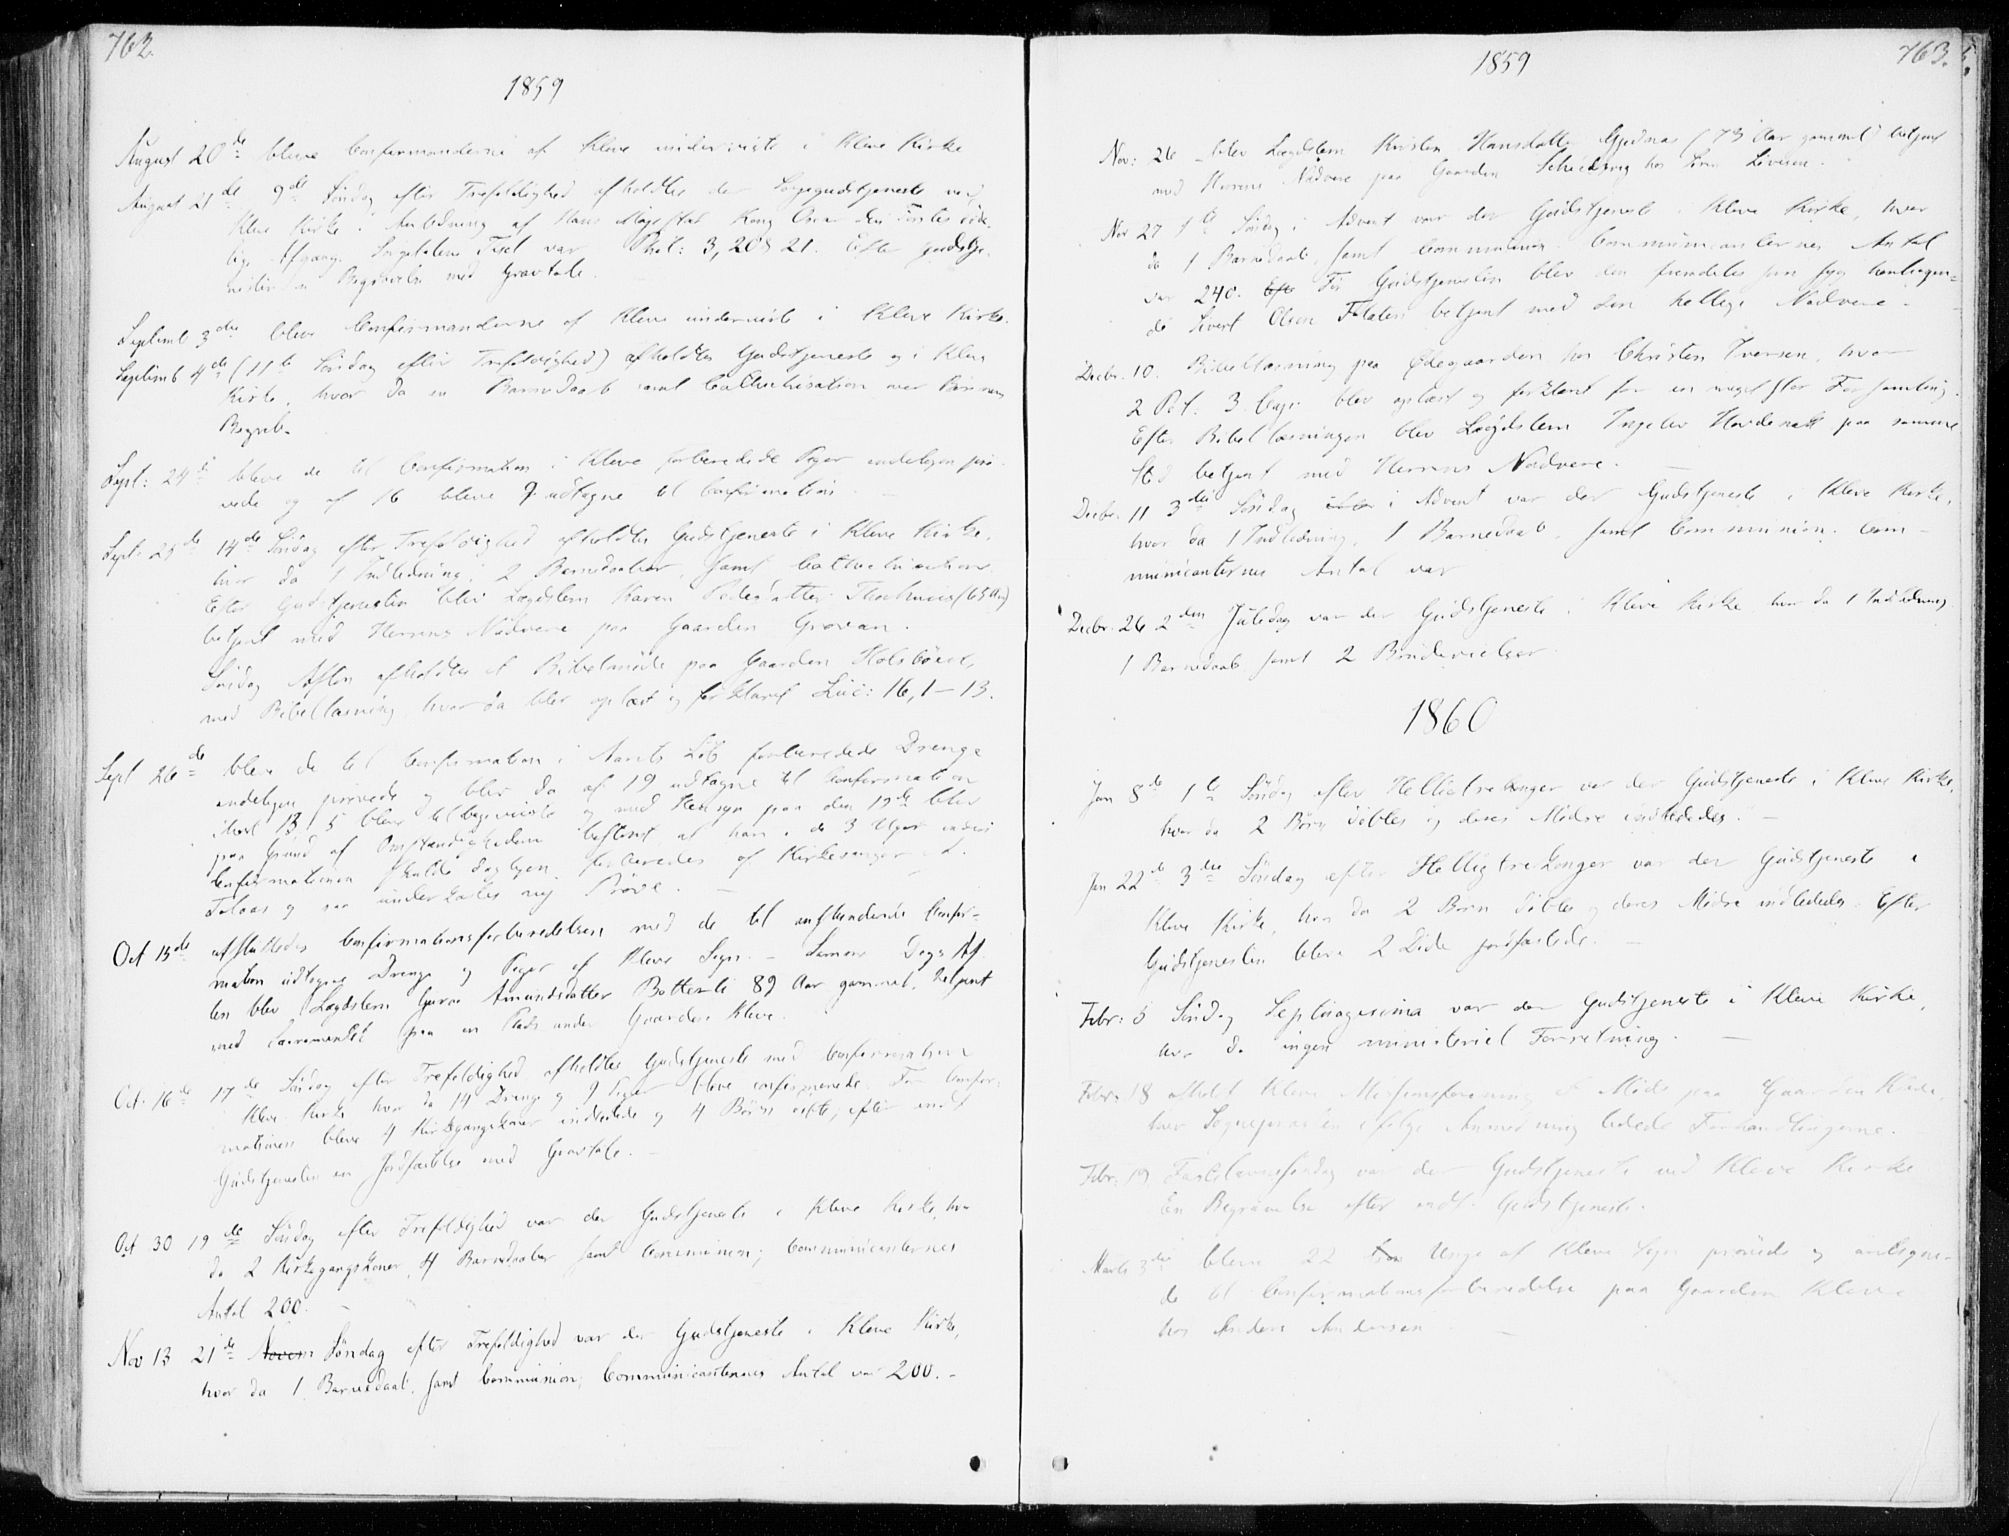 762.
1859
August 20de bleve Confirmanderne af Kleve underviste i Kleve Kirke
August 21de 9de Søndag efter Trefoldighed afholdtes der Sørgegudstjeneste ved
Kleve Kirke i Anledning af Hans Majestæt Kong Oscar den Førstes døde-
lige Afgang. Sørgetalens Text var Phil: 3, 20 & 21. Efter Gudstje-
nesten en Begravelse med Gravtale.
Septemb 3die bleve Confirmanderne af Kleve underviste i Kleve Kirke.
Septemb 4de (11te Søndag efter Trefoldighed) afholdtes Gudstjeneste i Kleve
Kirke, hvor da en Barnedaab samt Catechisation over
Begreb.
Sept: 24de bleve de til Confirmation i Kleve forberedede Piger endeligen prø-
vede og af 16 bleve 9 udtagne til Confirmation.
Sept: 25de 14de Søndag efter Trefoldighed afholdtes Gudstjeneste i Kleve Kirke,
hvor da 1 Indledning, 2 Barnedaaber, samt Catechisation.
Efter Gudstjenesten blev Lægdslem Karen Pedersdatter (65 Aar)
betjent med Herrens Nadvere paa Gaarden Grovan.
Søndag Aften afholdtes et Bibelmøde paa Gaarden Holsbøen,
med Bibellæsning, hvor da blev oplæst og forklaret Luc: 16, 1-13.
Sept 26de bleve de til Confirmation i Aarets Løb forberedede Drenge
endeligen prøvede og blev da af 19 udtagne til Confirmation
5 bleve tilbageviste og med Hensyn paa den 19de blev
paa Grund af Omstændighederne bestemt, at han i de 3 Uger inden
Confirmationen skulde dagligen forberedes af Kirkesanger
og saa underkastes ny Prøve. -
Oct 15de afsluttedes Confirmationsforberedelsen med de til anstundende Confir-
mation udtagne Drenge og Piger af Kleve Sogn. - Samme Dags Af-
ten blev Lægdslem Guroe Amundsdatter 89 Aar gammel, betjent
med Sacramentet paa en Plads under Gaarden Kleve.
Oct. 16de 17de Søndag efter Trefoldighed afholdtes Gudstjeneste med Confirmation
i Kleve Kirke hvor da 14 Drenge og 9 Piger bleve confirmerede. Før Confir-
mationen bleve 4 Kirkegangskoner indledede og 4 Børn døbte, efter endt
Gudstjenesten en Jordfæstelse med Gravtale. -
Oct 30 19de Søndag efter Trefoldighed var der Gudstjeneste i Kleve Kirke, hvor
da 2 Kirkegangskoner, 4 Barnedaaber samt Communion; Communicanternes
Antal 200. -
Nov 13 21de Novem Søndag efter Trefoldighed var der Gudstjeneste i Kleve Kirke,
hvor da 1 Barnedaab, samt Communion; Communicanternes Antal var 200. -
763.
1859
Nov: 26 blev Lægdslem Kirsten Hansdatter (73 Aar gammel) betjent
med Herrens Nadvere paa Gaarden hos
Nov 27 1te Søndag i Advent var der Gudstjeneste i Kleve Kirke, hvor
da 1 Barnedaab, samt Communion. Communicanternes Antal
var 240. Efte Før Gudstjenesten blev den fremdeles som syg henliggen-
de Sivert Olsen betjent med den hellige Nadvere -
Decbr. 10. Bibellæsning paa Ødegaarden hos Christen Iversen, hvor
2 Pet: 3 Cap: blev oplæst og forklaret for en meget stor Forsamling.
Efter Bibellæsningen blev Lægdslem Ingebor paa samme
Sted betjent med Herrens Nadvere. -
Decbr. 11 3die Søndag efter i Advent var der Gudstjeneste i Kleve Kirke,
hvor da 1 Indledning, 1 Barnedaab, samt Communion. Com-
municanternes Antal var
Decbr. 26 2den Juledag var der Gudstjeneste i Kleve Kirke hvor da 1 Indledning
1 Barnedaab samt 2 Brudevielser.
1860
Jan 8de 1te Søndag efter Helligtrekonger var der Gudstjeneste i Kleve Kirke,
hvor da 2 Børn døbtes og deres Mødre indlededes. -
Jan 22de 3die Søndag efter Helligtrekonger var der Gudstjeneste i
Kleve Kirke, hvor da 2 Børn døbtes og deres Mødre indlededes. Efter
Gudstjenesten bleve 2 Døde jordfæstede. -
Febr: 5 Søndag Septuagesima var der Gudstjeneste i Kleve Kirke,
hvor da ingen ministeriel Forretning. -
Febr: 18 afholdt Kleve Missionsforening et Møde paa Gaarden Kleve,
hvor Sognepræsten ifølge Anmodning ledede Forhandlingerne.
Febr: 19 Fastelavnssøndag var der Gudstjeneste ved Kleve Kirke
En Begravelse efter endt Gudstjeneste.
Marts 3die bleve 22 Unge af Kleve Sogn prøvede og antagne-
de til Confirmationsforberedelse paa Gaarden Kleve
hos Anders Andersen -